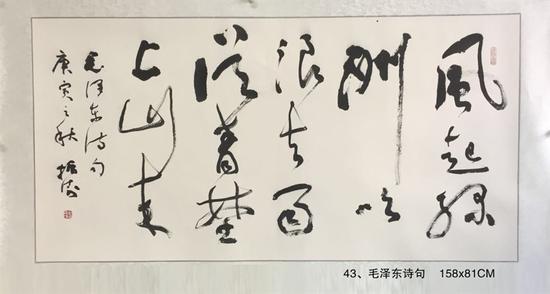 風起綠
洲吹
浪去雨
從青埜
上山来
毛泽东诗句
庚寅之秋
43、毛泽东诗句 158x81CM